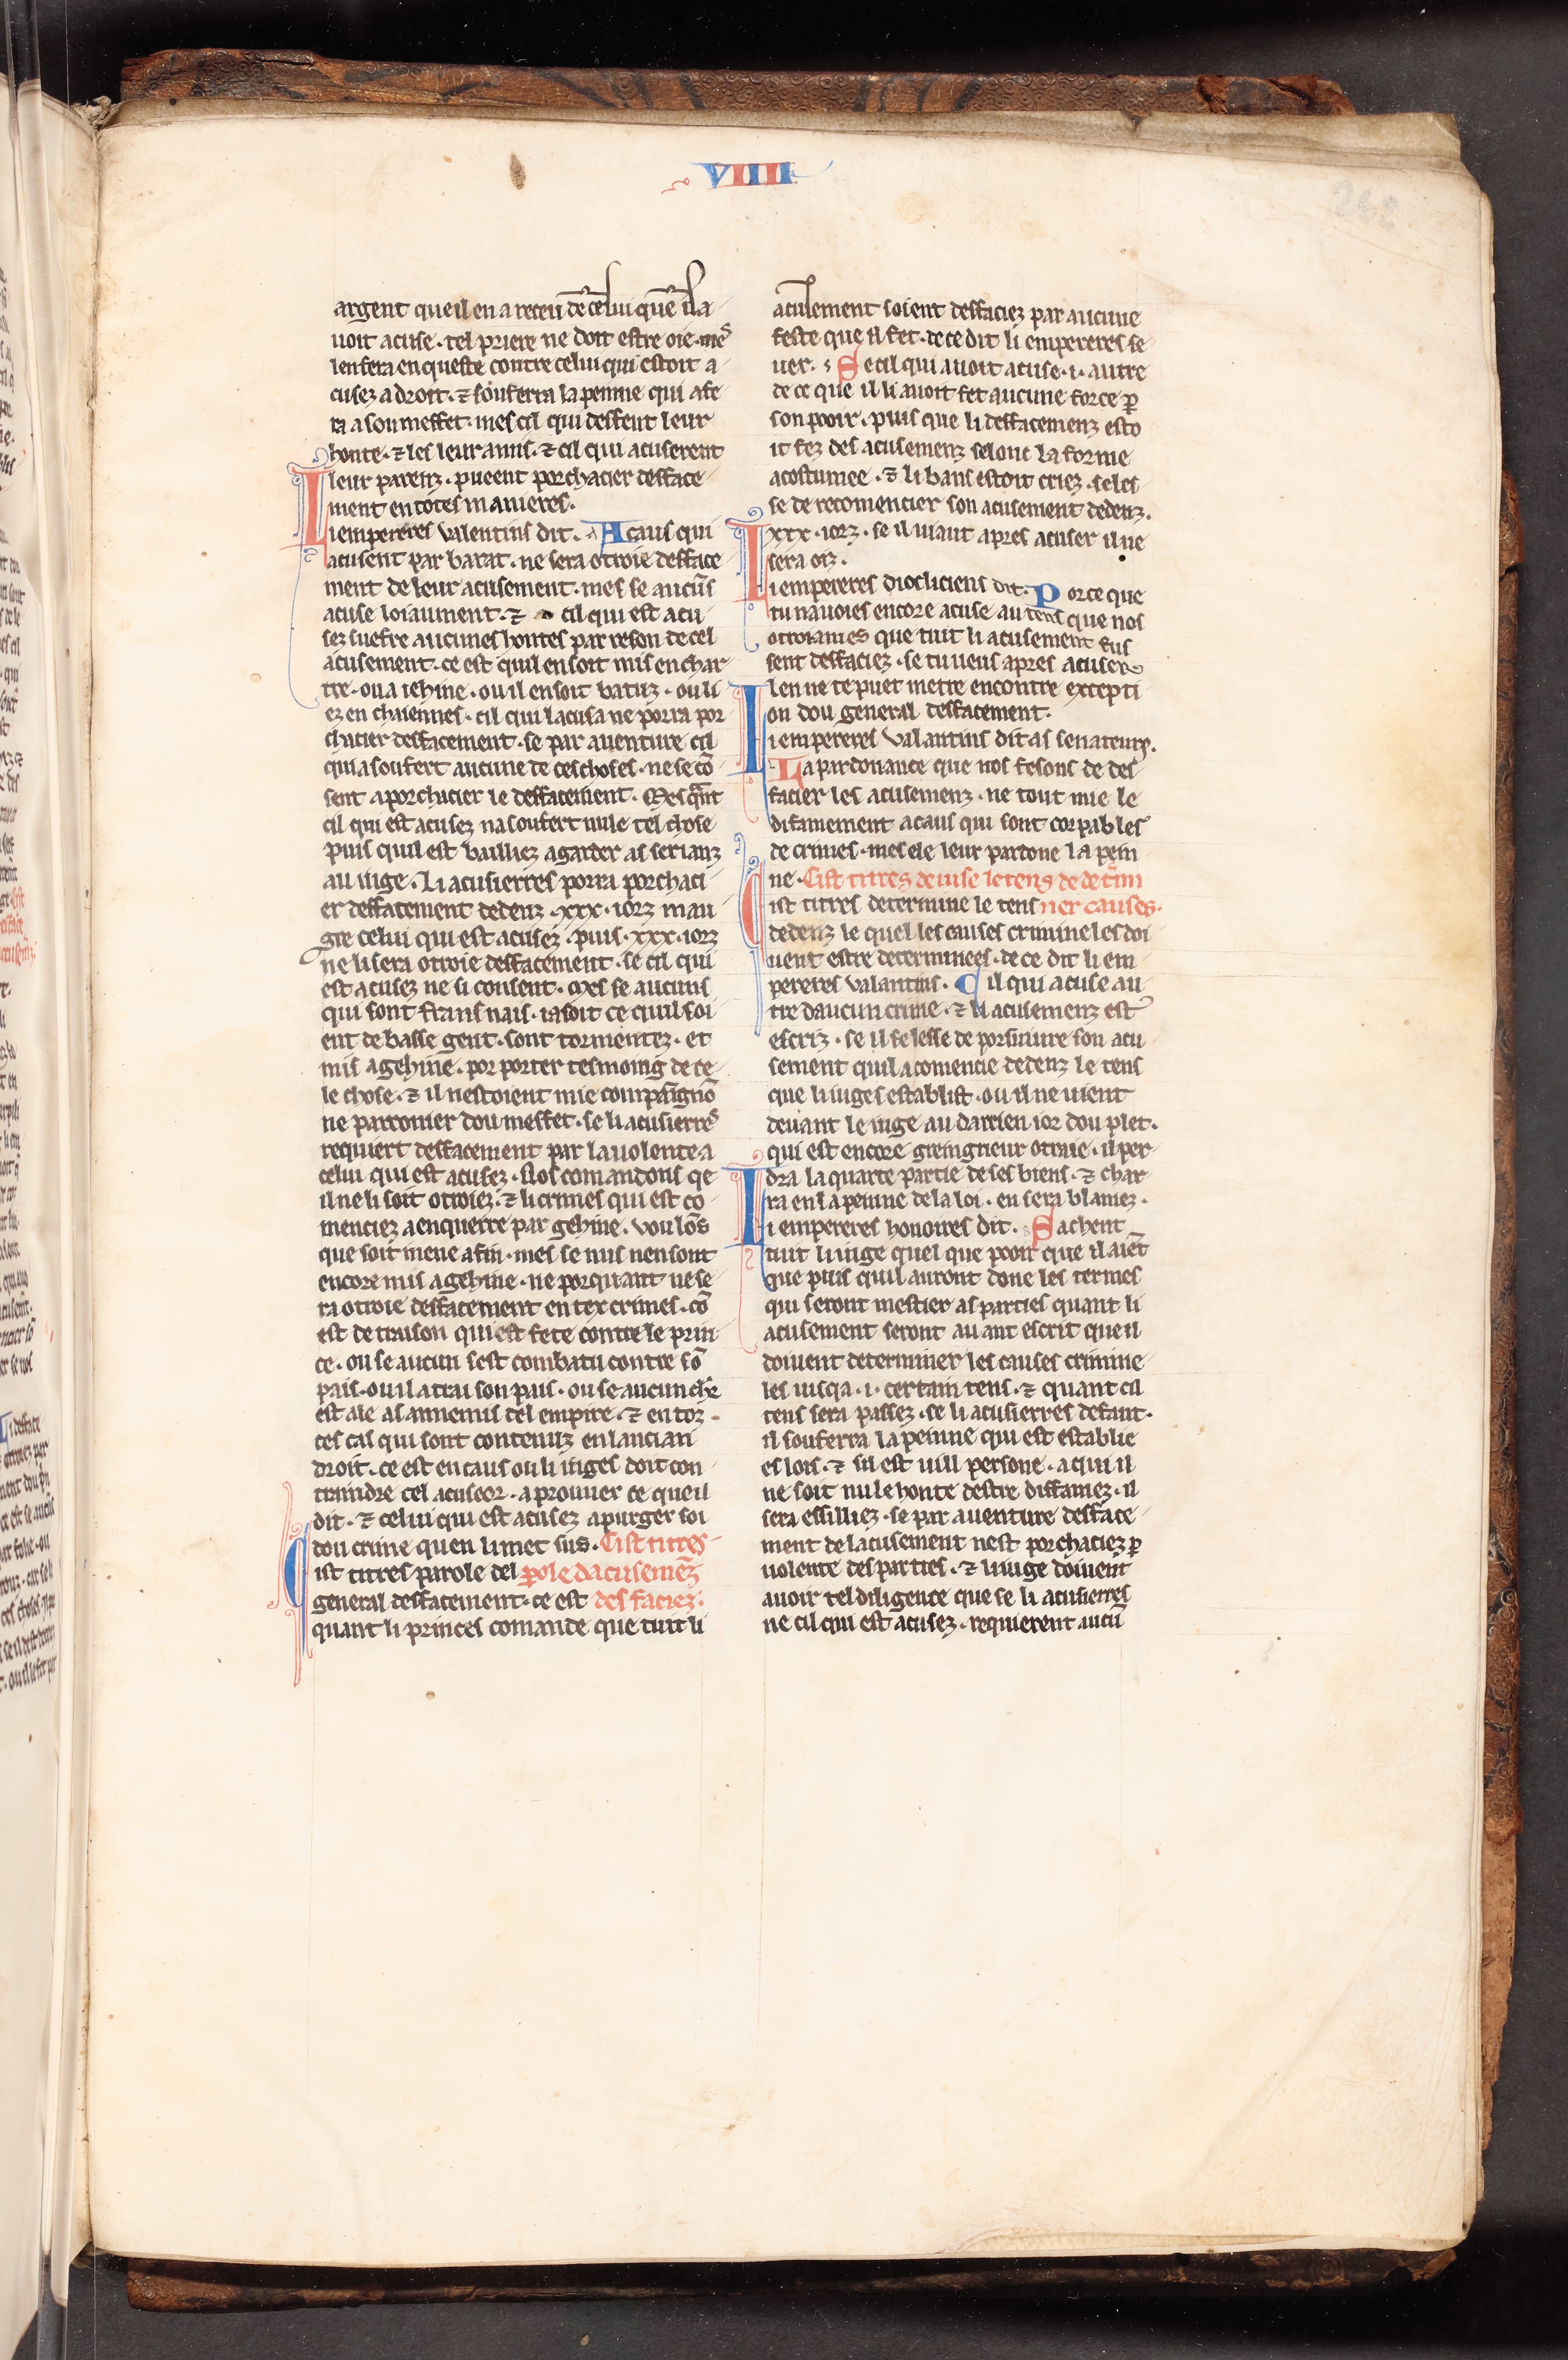 VIIII
262
argent que il en a receu de celui que il a
uoit acuse · tel priere ne doit estre oie · mes
len fera enqueste contre celui qui estoit a
cusez a droit · ⁊ souferra la penne qui afe
ra a son meffet · mes cil qui deffent leur
honte · ⁊ les leur amis · ⁊ cil qui acuserent
leur parenz · pueent porchacier defface
ment en totes manieres ·
Li empereres Valentins dit · A caus qui
acusent par barat · ne sera otroie defface
ment de leur acusement · mes se aucũs
acuse loiaument · ⁊ cil qui est acu
sez suefre aucunes hontes par reson de cel
acusement · ce est quil en soit mis en char
tre · ou a iehine · ou il en soit batuz · ou li
ez en chaiennes · cil qui lacusa ne porra por
chacier deffacement · se par auenture cil
qui a soufert aucune de ces choses · ne se cõ
sent a porchacier le deffacement · Mes qãnt
cil qui est acusez na soufert nule tel chose
puis quil est bailliez a garder as serianz
au iuge · Li acusierres porra porchaci
er deffacement dedenz · xxx · iorz mau
gre celui qui est acusez · puis · xxx · iorz
ne li sera otroie deffacement · se cil qui
est acusez ne si consent · Mes se aucuns
qui sont frans nais · ia soit ce quil soi
ent de basse gent · sont tormentez · et
mis a gehine · por porter tesmoing de ce
le chose · ⁊ il nestoient mie compaignõ
ne parconier dou meffet · se li acusierres
requiert deffacement par la uolente a
celui qui est acusez · Nos comandons qe
il ne li soit otroiez · ⁊ li crimes qui est co
menciez a enquerre par gehine · uoulõs
que soit mene a fin · mes se nus nen sont
encore mis a gehine · ne porquant ne se
ra otroie deffacement en tex crimes · cõ
est de traison qui est fete contre le prin
ce · ou se aucun sest combatu contre sõ
pais · ou il a trai son pais · ou se aucun chr̃
est ale as annemis del empire · ⁊ en toz ·
ces cas qui sont contenuz en lancian
droit · ce est en caus ou li iuges doit con
traindre cel acuseor · a prouuer ce que il
dit · ⁊ celui qui est acusez a purger soi
dou crime quen li met sus · Cist titres
Cist titres parole del p̱ole dacusemẽz
general deffacement · ce est desfaciez ·
quant li princes comande que tuit li
acusement soient deffaciez par aucune
feste que il fet · de ce dit li empereres se
uer · Se cil qui auoit acuse · i · autre
de ce que il li auoit fet aucune force p̱
son pooir · puis que li deffacemenz esto
it fez des acusemenz selonc la forme
acostumee · ⁊ li bans estoit criez · se les
se de recomencier son acusement dedenz ·
xxx · iorz · se il uiaut apres acuser il ne
sera oiz ·
Li empereres diocliciens dit · Por ce que
tu nauoies encore acuse au tens que nos
otroiames que tuit li acusement fus
sent deffaciez · se tu uens apres acuser
len ne te puet metre encontre excepti
on dou general deffacement ·
Li empereres Valantins dit as senateurs ·
La pardonance que nos fesons de des
facier les acusemenz · ne tout mie le
difamement a caus qui sont corpables
de crimes · mes ele leur pardone la pein
ne · Cist titres deuise le tens de det̃mi
Cist titres determine le tens ner causes ·
dedenz le quel les causes crimineles doi
uent estre determinees · de ce dit li em
pereres Valantins · Cil qui acuse au
tre daucun crime · ⁊ li acusemenz est
escriz · se il se lesse de porsiuure son acu
sement quil a comencie dedenz le tens
que li iuges establist · ou il ne uient
deuant le iuge au darrien ior dou plet ·
qui est encore greingneur otraie · il per
dra la quarte partie de ses biens · ⁊ char
ra en la peinne de la loi · en sera blamez ·
Li empereres honoires dit · Sachent
tuit li iuge quel que pooir que il aiẽt
que puis quil auront done les termes
qui seront mestier as parties quant li
acusement seront auant escrit que il
doiuent determiner les causes crimine
les iusqa · i · certain tens · ⁊ quant cil
tens sera passez · se li acusierres defaut ·
il souferra la peinne qui est establie
es lois · ⁊ sil est uill persone · a qui il
ne soit nule honte destre diffamez · il
sera essilliez · se par auenture defface
ment de lacusement nest porchaciez p̱
uolente des parties · ⁊ li iuge doiuent
auoir tel diligence que se li acusierres
ne cil qui est acusez · requierent aucũ